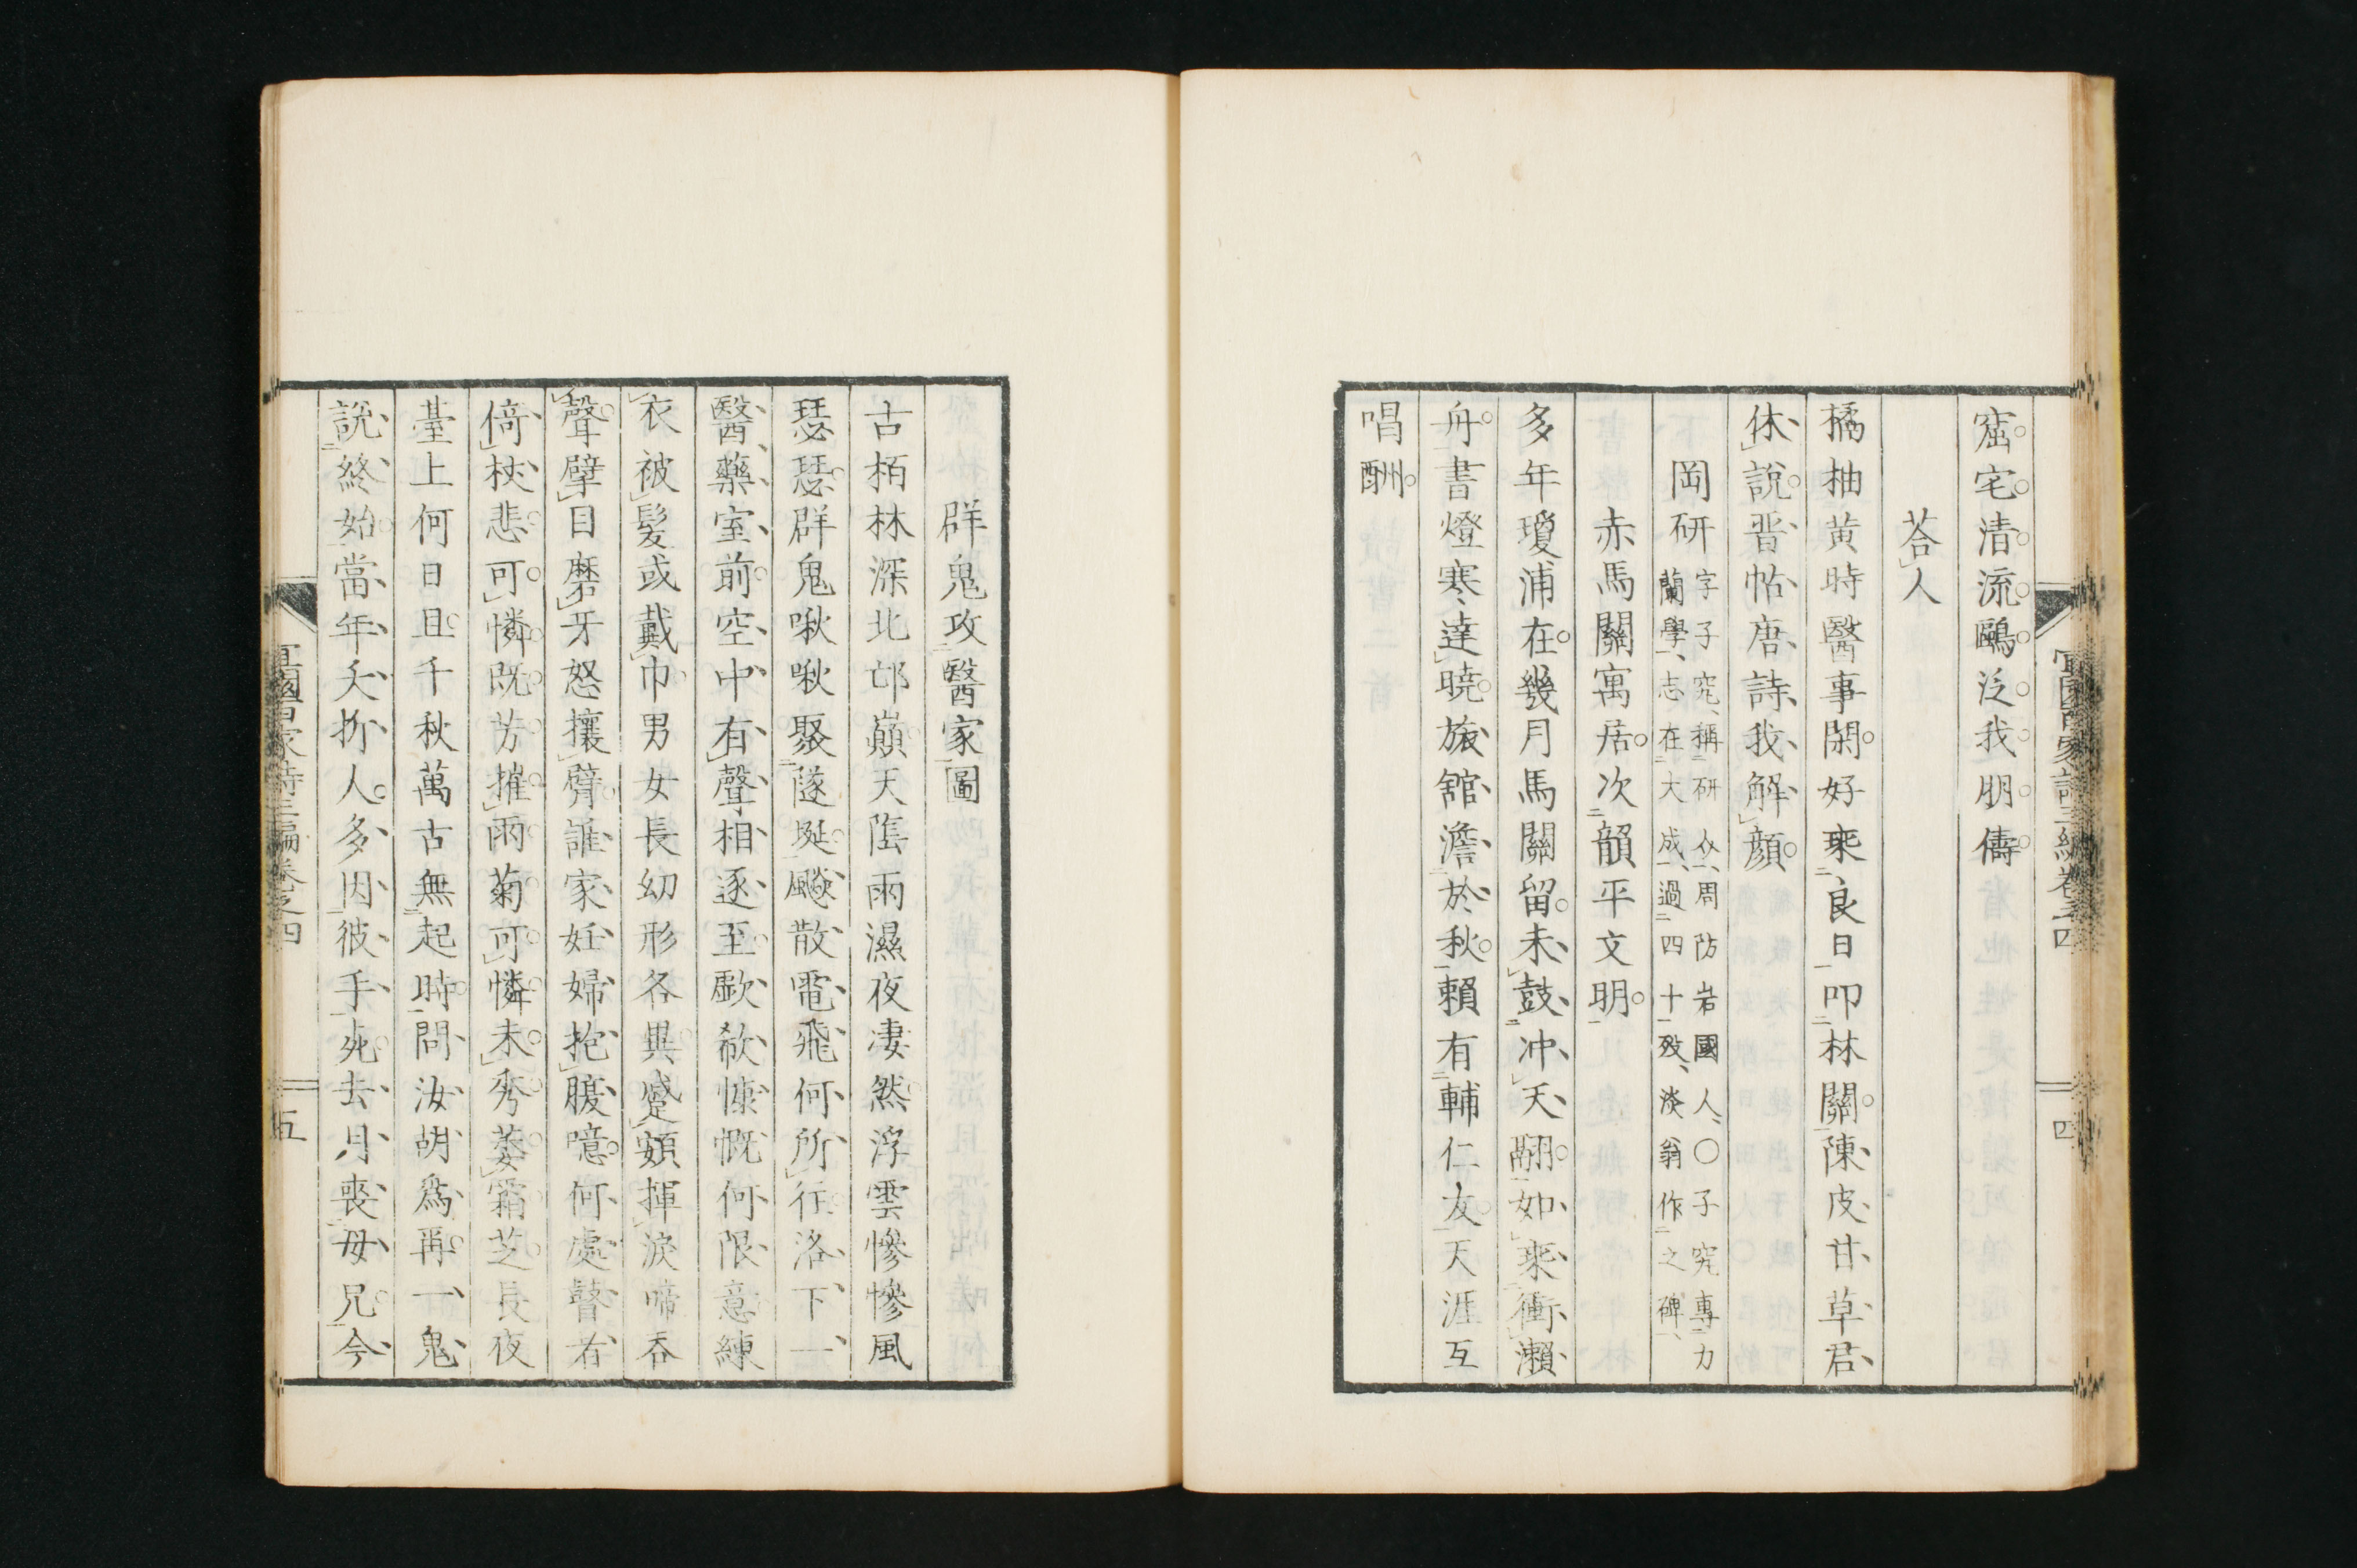 窟宅清流鷗泛我朋儔
荅人
橘柚黄時醫事閑好乘良日叩林關陳皮甘草君
休說晋帖唐詩我解顔
岡研字子究、稱研众、周防岩國人、〇子究專力
蘭學、志在大成、過四十歿、淡翁作之碑、
赤馬關寓居次韻平文明
多年瓊浦在幾月馬關留未鼓冲天翮如乘衝瀨
舟書燈寒達曉旅舘澹於秋賴有輔仁友天涯互
唱酬
宜園百家詩三編卷之四
四
群鬼攻醫家圖
古栢林深北邙巔天陰雨濕夜凄然浮雲慘慘風
瑟瑟群鬼啾啾聚隧埏飈散電飛何所往洛下一
醫藥室前空中有聲相逐至歔欷慷慨何限意練
衣被髮或戴巾男女長幼形各異蹙頞揮淚啼吞
聲擘目磨牙怒攘臂誰家妊婦抱腹噫何處瞽者
倚杖悲可憐既芳摧雨菊可憐未秀萎霜芝長夜
臺上何日旦千秋萬古無起時問汝胡爲再一鬼
說終始當年夭折人多因彼手死去月喪母兄今
宜園百家詩三編卷之四
五